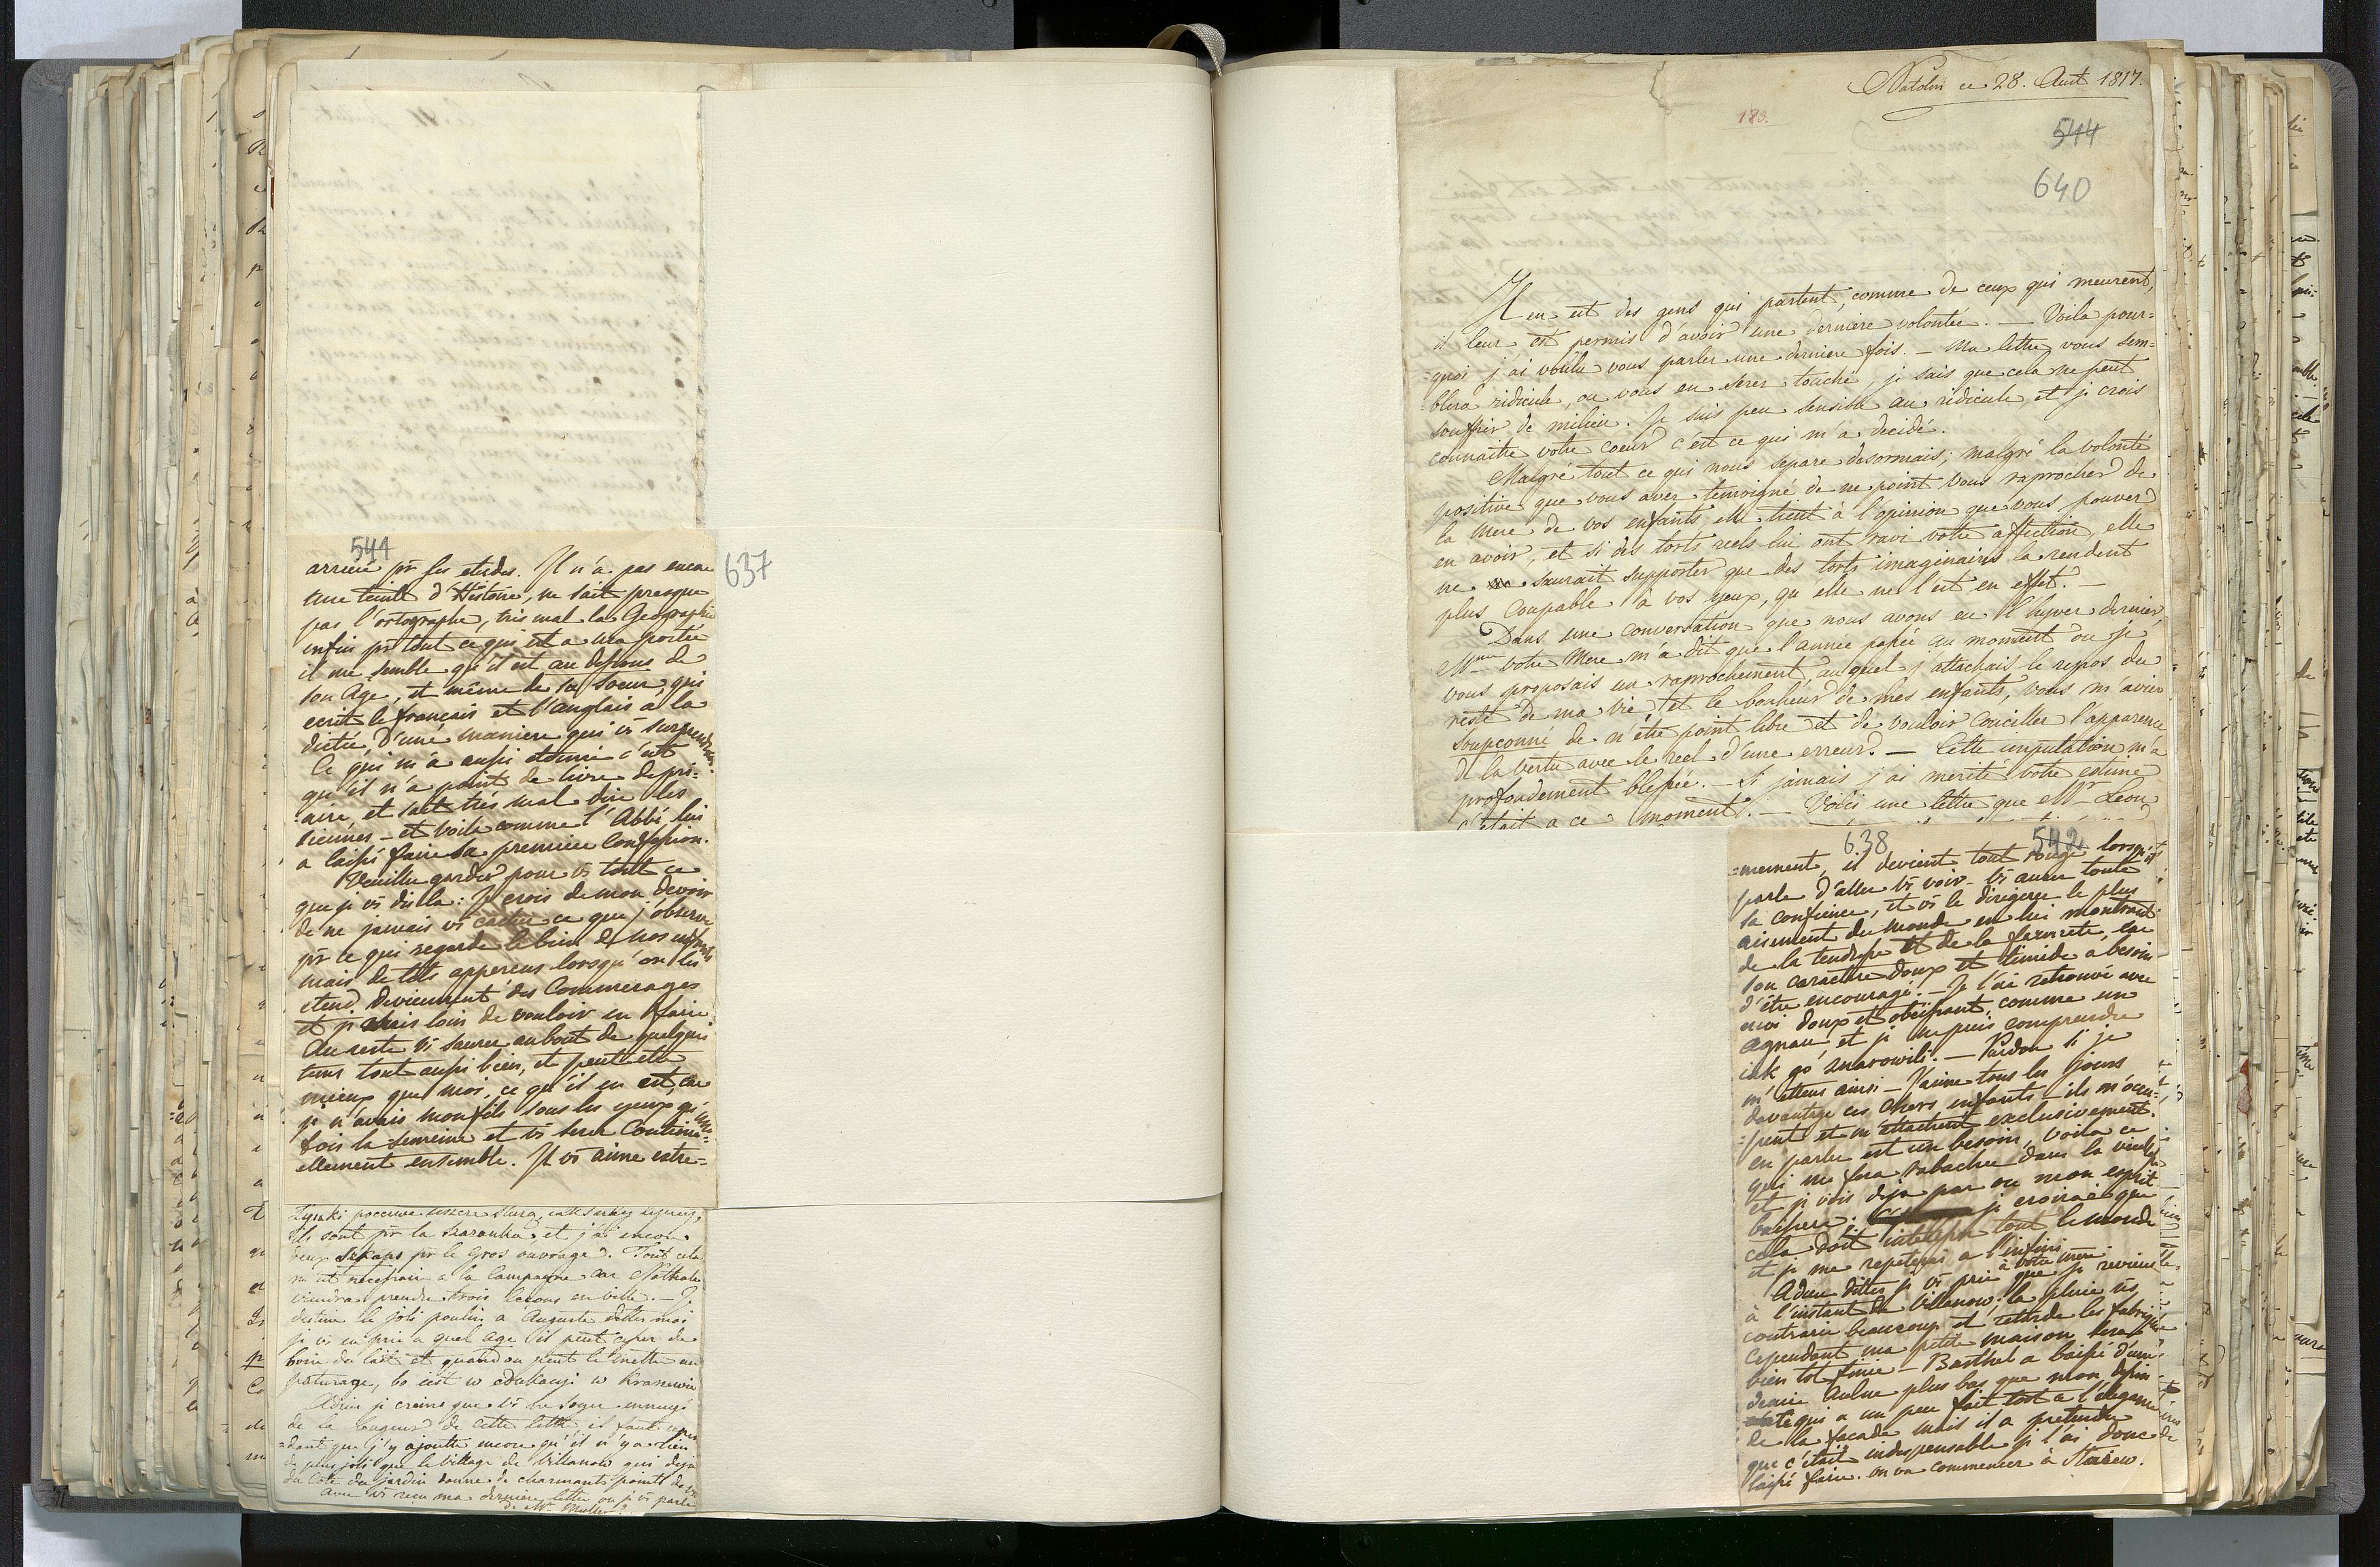 541
637
arrieré pr ses etudes. Il n'a pas encore
une teinte d'Histoire, ne sait presque
pas l'ortographe, tres mal la Geographie
enfin pr tout ce qui est a ma portée
il me semble qu'il est au dessous de
son age, et même de sa soeur, qui
ecrit le français et l'anglais a la
dictée, d'une maniere qui vs surprendra.
Ce qui m'a aussi etonné c'est
qu'il n'a point de livre de pri=
=aire, et sait très mal dire les
siennes - et voila comme l'Abbé lui
a laissé faire sa premiere Confession.
Veuillez garder pour vs tout ce
que je vs dis la: Je crois de mon devoir
de ne jamais vs cacher ce que j'observe
pr ce qui regarde le bien de nos enfants
mais de tels apperçus lorsqu'on les
etend deviennent des Commerages
et je suis loin de vouloir en faire
Au reste vs saurez au bout de quelques
tems tout aussi bien, et peut etre
mieux que moi, ce qu'il en est, car
je n'avais mon fils sous les yeux qu'une
fois la semaine et vs serez Continu=
ellement ensemble. Il vs aime extre=
ils sont pr la et j'ai encore
deux pr le gros ouvrage. Tout cela
m'est necessaire a la Campagne car Nathalie
viendra prendre trois lecons en ville. - Je
destine le joli poulin a Auguste dittes moi
je vs en prie a quel age il peut cesser de
boire du lait et quand on peut le mettre au
paturage, bo jest w edukacyi w
Adieu je crains que vs ne soyez ennuyé
de la longueur de cette lettre, il faut cepen
=dant que j'y ajoutte encore qu'il n'y a rien
de plus joli que le village de Villanow qui deja
du coté du jardin donne de charmants points de vue
avez vs recu ma derniere lettre ou je vs parle
de Mr Muller?
Natolin ce 28. Aout 1817.
183.
544
640
Il en est des gens qui partent, comme de ceux qui meurent,
il leur est permis d'avoir une derniere volontée. — Voila pour=
=quoi j'ai voulu vous parler une derniere fois. — Ma lettre vous sem=
=blera ridicule, ou vous en serez touché, je sais que cela ne peut
souffrir de milieu. Je suis peu sensible au ridicule, et je crois
connaitre votre coeur c'est ce qui m'a decidé.
Malgré tout ce qui nous separe desormais; malgré la volonté
positive que vous avez temoigné de ne point vous raprocher de
la Mere de vos enfants, elle tient à l'opinion que vous pouvez
en avoir, et si des torts reels lui ont ravi votre affection, elle
ne saurait supporter que des torts imaginaires la rendent
plus coupable à vos yeux, qu'elle ne l'est en effet. —
Dans une conversation que nous avons eu l'hyver dernier,
Mme votre Mere m'a dit que l'année passée au moment ou je
vous proposais un raprochement, auquel j'attachais le repos du
reste de ma vie, et le bonheur de mes enfants, vous m'aviez
soupçonné de n'être point libre et de vouloir concilier l'apparence
de la vertu avec le reel d'une erreur. — Cette imputation m'a
profondement blessée. — Si jamais j'ai merité votre estime
c'était a ce moment. — Voici une lettre que Mr Leon
638
542
=mement, il devient tout rouge lorsqu'il
parle d'aller vs voir - vs aurez toute
sa confience, et vs le dirigerez le plus
aisement du monde en lui montrant
de la tendresse et de la fermeté, car
son caractere doux et timide a besoin
d'être encouragé. — Je l'ai retrouvé avec
moi doux et obeissant, comme un
agneau, et je ne puis comprendre
iak go znarowili. — Pardon si je
m'etens ainsi — J'aime tous les jours
davantage ces chers enfants - ils m'occu=
=pent et m'attachent exclusivement.
en parler est un besoin, voila ce
qui me fera rabacher dans la vieillesse
et je vois deja par ou mon esprit
baissera. je croirai que
cela doit interesser tout le monde
et je me repeterai a l'infini
Adieu dittes je vs prie à votre mere que je reviens
à l'instant de Villanow. la pluie vs
contrarie beaucoup et retarde les fabriques
Cependant ma petite maison sera
bien tot finie — Barthel a baissé d'une
demie Aulne plus bas que mon dessin
qui a un peu fait tort a l'elegance
de la façade mais il a pretendu
que c'était indispensable je l'ai donc
laissé faire. on va commencer à